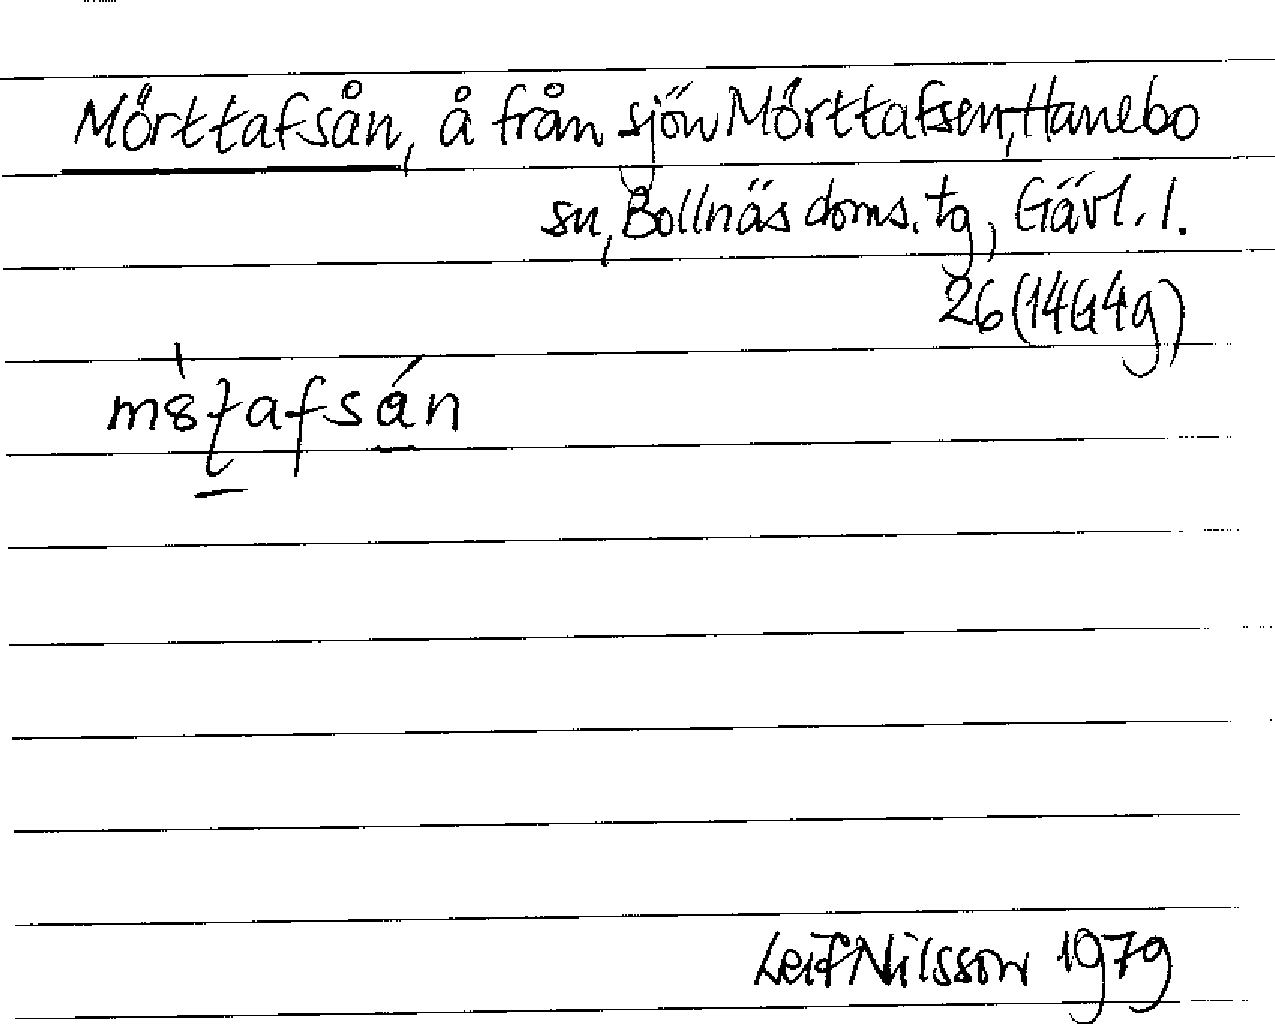 Mörttafsån, å från sjön Mörttafsen, Hanebo
sn, Bollnäs doms. tg, Gävl. l.
26 (14G4g)
Leif Nilsson 1979